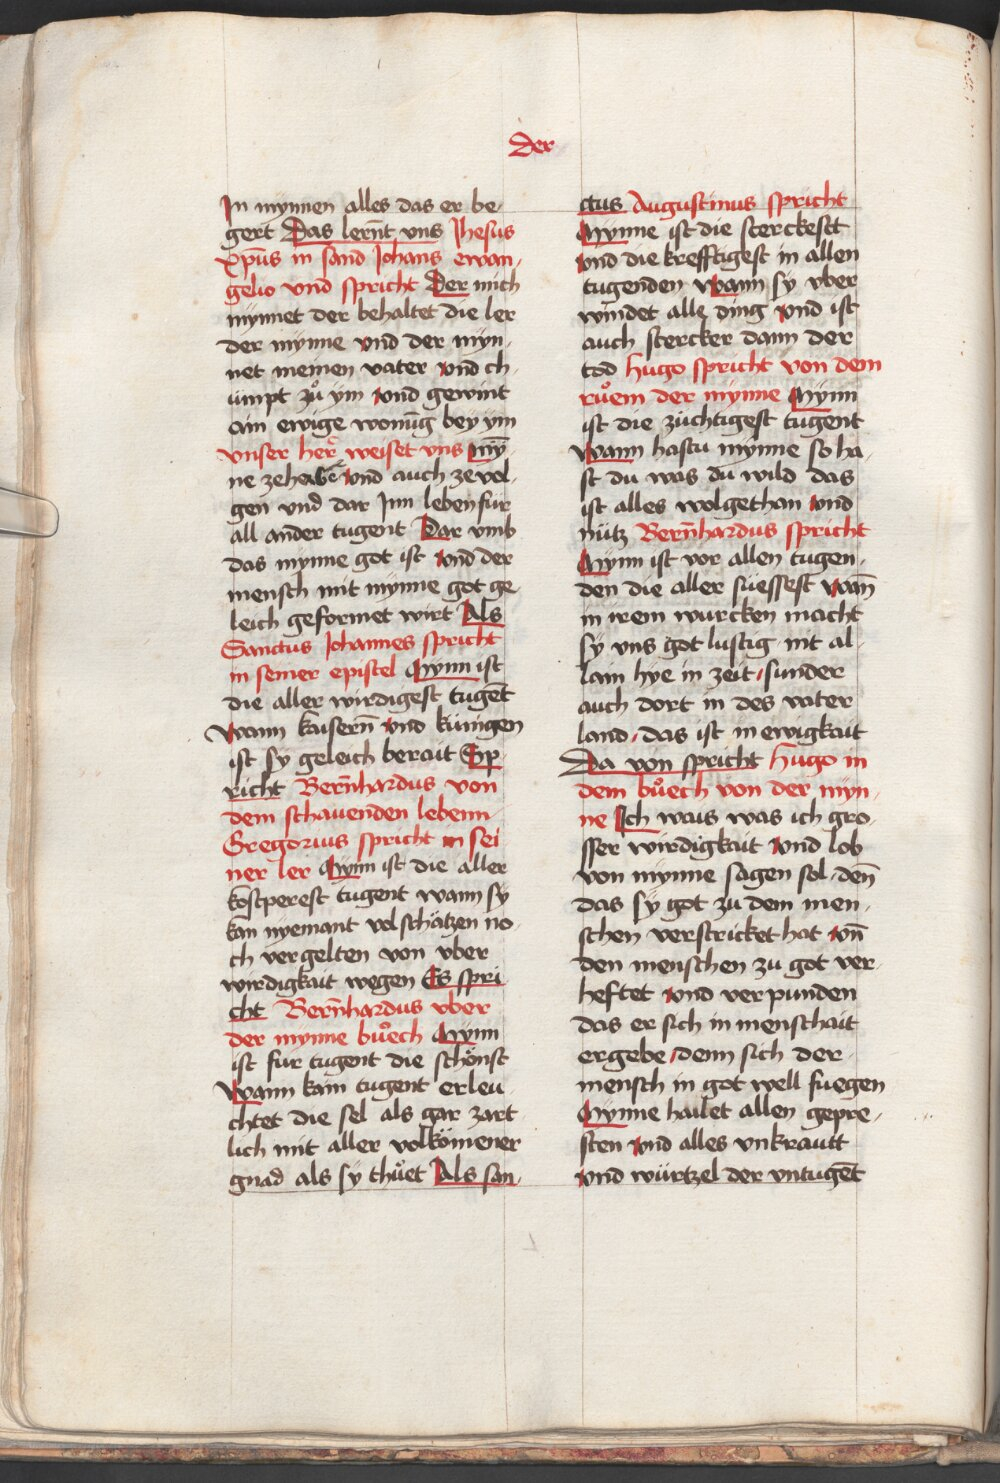 der
In mynnen alles das er be-
gert Das lern̄t vns Jhesus
xp̄us in sand Johans ewan-
gelio vnd spricht Der mich
mynnet der behaltet die ler
der mynne vnd der myn-
net meinen vater vnd ch-
umpt zuͦ ym vnd gewint
ain ewige wonūg bey ym
vnser her weiset vns mȳ-
ne zehabe vnd auch ze vol-
gen vnd dar Inn leben für
all ander tugent Dar vmb
das mynne got ist vnd der
mensch mit mynne got ge-
leich geformet wirt Als
Sanctus Johannes spricht
in seiner epistel Mynn ist
die aller wirdigest tugēt
wann kaisern̄ vnd künigen
ist sy geleich berait Sp-
richt Bern̄hardus von
dem schauenden lebenn
Gregorius spricht in sei
ner ler Mynn ist die aller
kostperest tugent wann sy
kan nyemant vol schätzen no-
ch vergelten von vber
wirdigkait wegen Es spri
cht Bern̄hardus vber
der mynne buͦech Mynn
ist fur tugent die schönst
Wann kain tugent erleu-
chtet die sel als gar zart
lich mit aller volkōmener
gnad als sy thuͦet Als san-
ctus Augustinus spricht
Mynne ist die sterckestt
vnd die krefftigest in allen
tugenden wann sy vber
windet alle ding vnd ist
auch stercker dann der
tod Hugo spricht von dem
ruͦem der mynne Mynn
ist die züchtigest tugent
Wann hastu mynne so ha-
st du was du wild das
ist alles wolgethan vnd
nütz Bern̄hardus spricht
Mynn ist vor allen tugen-
den die aller süessest wan̄
in irem wurcken macht
sy vns got lustig nit al-
lain hye in zeit sunder
auch dort in des vater
land, das ist in ewigkait
Da von spricht Hugo in
dem buͦech von der myn-
ne Ich wais was ich gro-
sser wirdigkait vnd lob
von mynne sagen sol den̄
das sy got zu dem men-
schen verstricket hat vn̄
den menschen zu got ver-
heftet vnd verpunden
das er sich in menschait
ergebe, denn sich der
mensch in got well fuegen
Mynne hailet allen gepre-
sten vnd alles vnkrautt
vnd würtzel der vntugēt